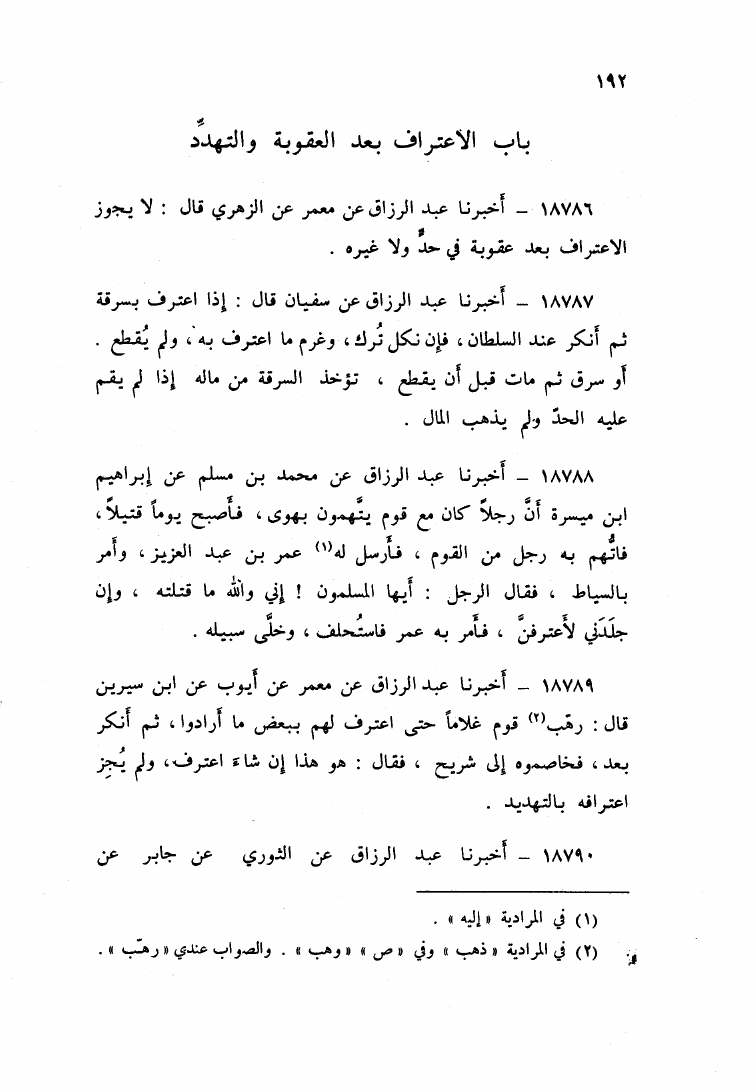 ١٩٢
باب الاعتراف بعد العقوبة والتهدُّد
١٨٧٨٦ - أخبرنا عبد الرزاق عن معمر عن الزهري قال : لا يجوز
الاعتراف بعد عقوبة في حدٍّ ولا غيره .
١٨٧٨٧ - أخبرنا عبد الرزاق عن سفيان قال : إذا اعترف بسرقة
ثم أنكر عند السلطان ، فإن نكل تُرك ، وغرم ما اعترف به ، ولم يُقطع .
أو سرق ثم مات قبل أن يقطع ، تؤخذ السرقة من ماله إذا لم يقم
عليه الحدّ ولم يذهب المال .
١٨٧٨٨ - أخبرنا عبد الرزاق عن محمد بن مسلم عن إبراهيم
ابن ميسرة أنَّ رجلاً كان مع قوم يتَّهمون بهوى ، فأصبح يوماً قتيلاً ،
فاتُّهم به رجل من القوم ، فأرسل له(١) عمر بن عبد العزيز ، وأمر
بالسياط ، فقال الرجل : أيها المسلمون ! إني والله ما قتلته ، وإن
جلدَني لأعترفنَّ ، فأمر به عمر فاستُحلف ، وخلَّى سبيله .
١٨٧٨٩ - أخبرنا عبد الرزاق عن معمر عن أيوب عن ابن سيرين
قال : رهّب(٢) قوم غلاماً حتى اعترف لهم ببعض ما أرادوا ، ثم أنكر
بعد ، فخاصموه إلى شريح ، فقال : هو هذا إن شاء اعترف ، ولم يُجِز
اعترافه بالتهديد .
١٨٧٩٠ - أخبرنا عبد الرزاق عن الثوري عن جابر عن
(١) في المرادية «إليه» .
(٢) في المرادية «ذهب» وفي «ص» «وهب» . والصواب عندي «رهّب» .